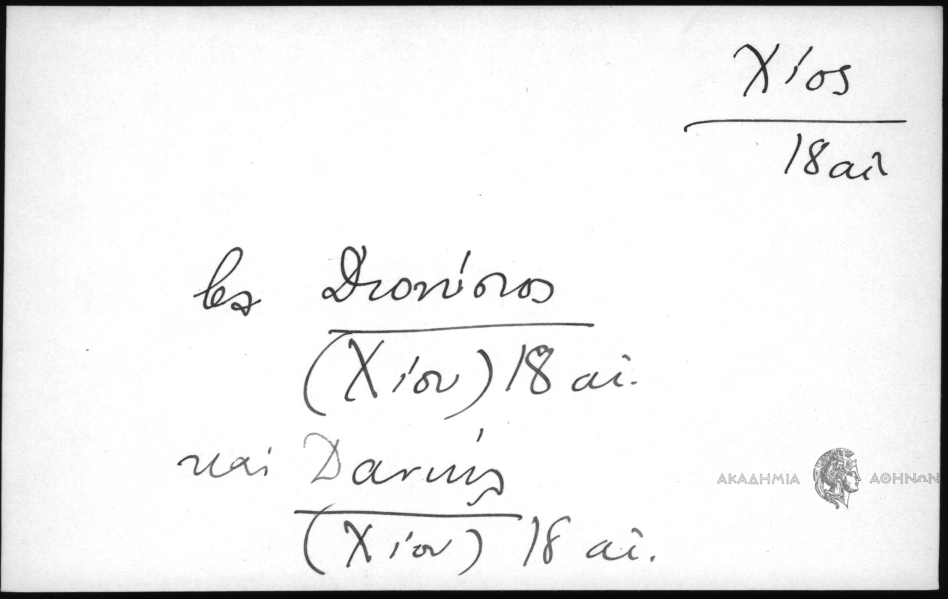 Χίος
18 αἰ
βλ Διονύσιος
(Χίου) 18 αἰ.
καὶ Δανιήλ
(Χίου) 18 αἰ.
ΑΚΑΔΗΜΙΑ ΑΘΗΝΩΝ